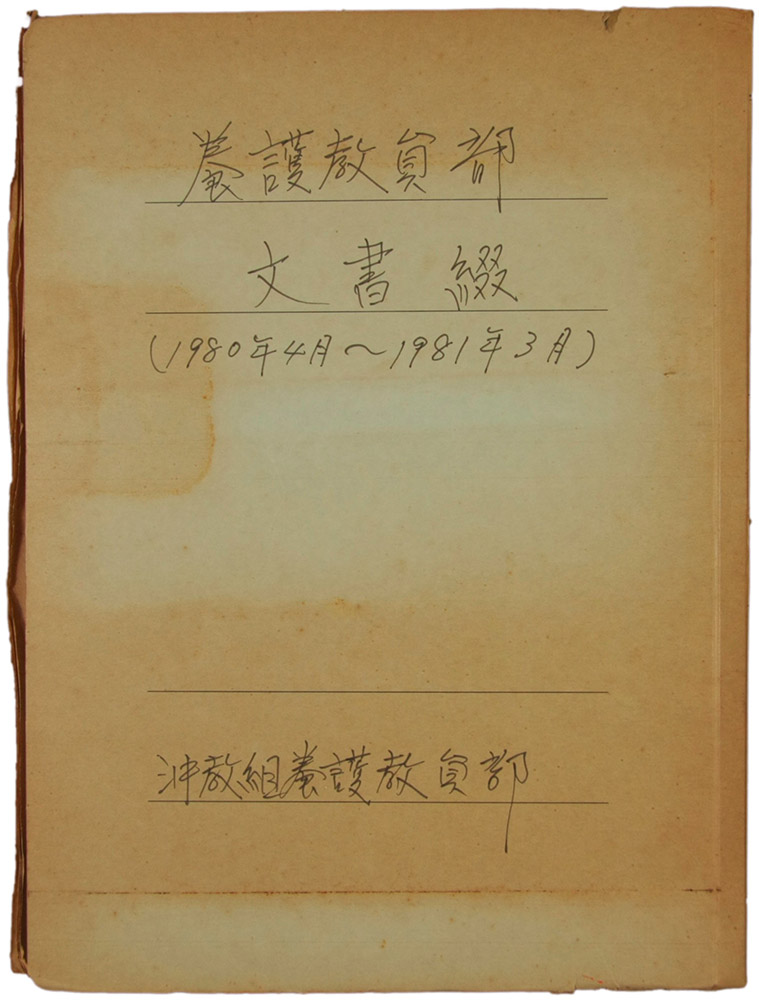 養護教員部
文書綴
(1980年4月～1981年3月)
沖教組養護教員部